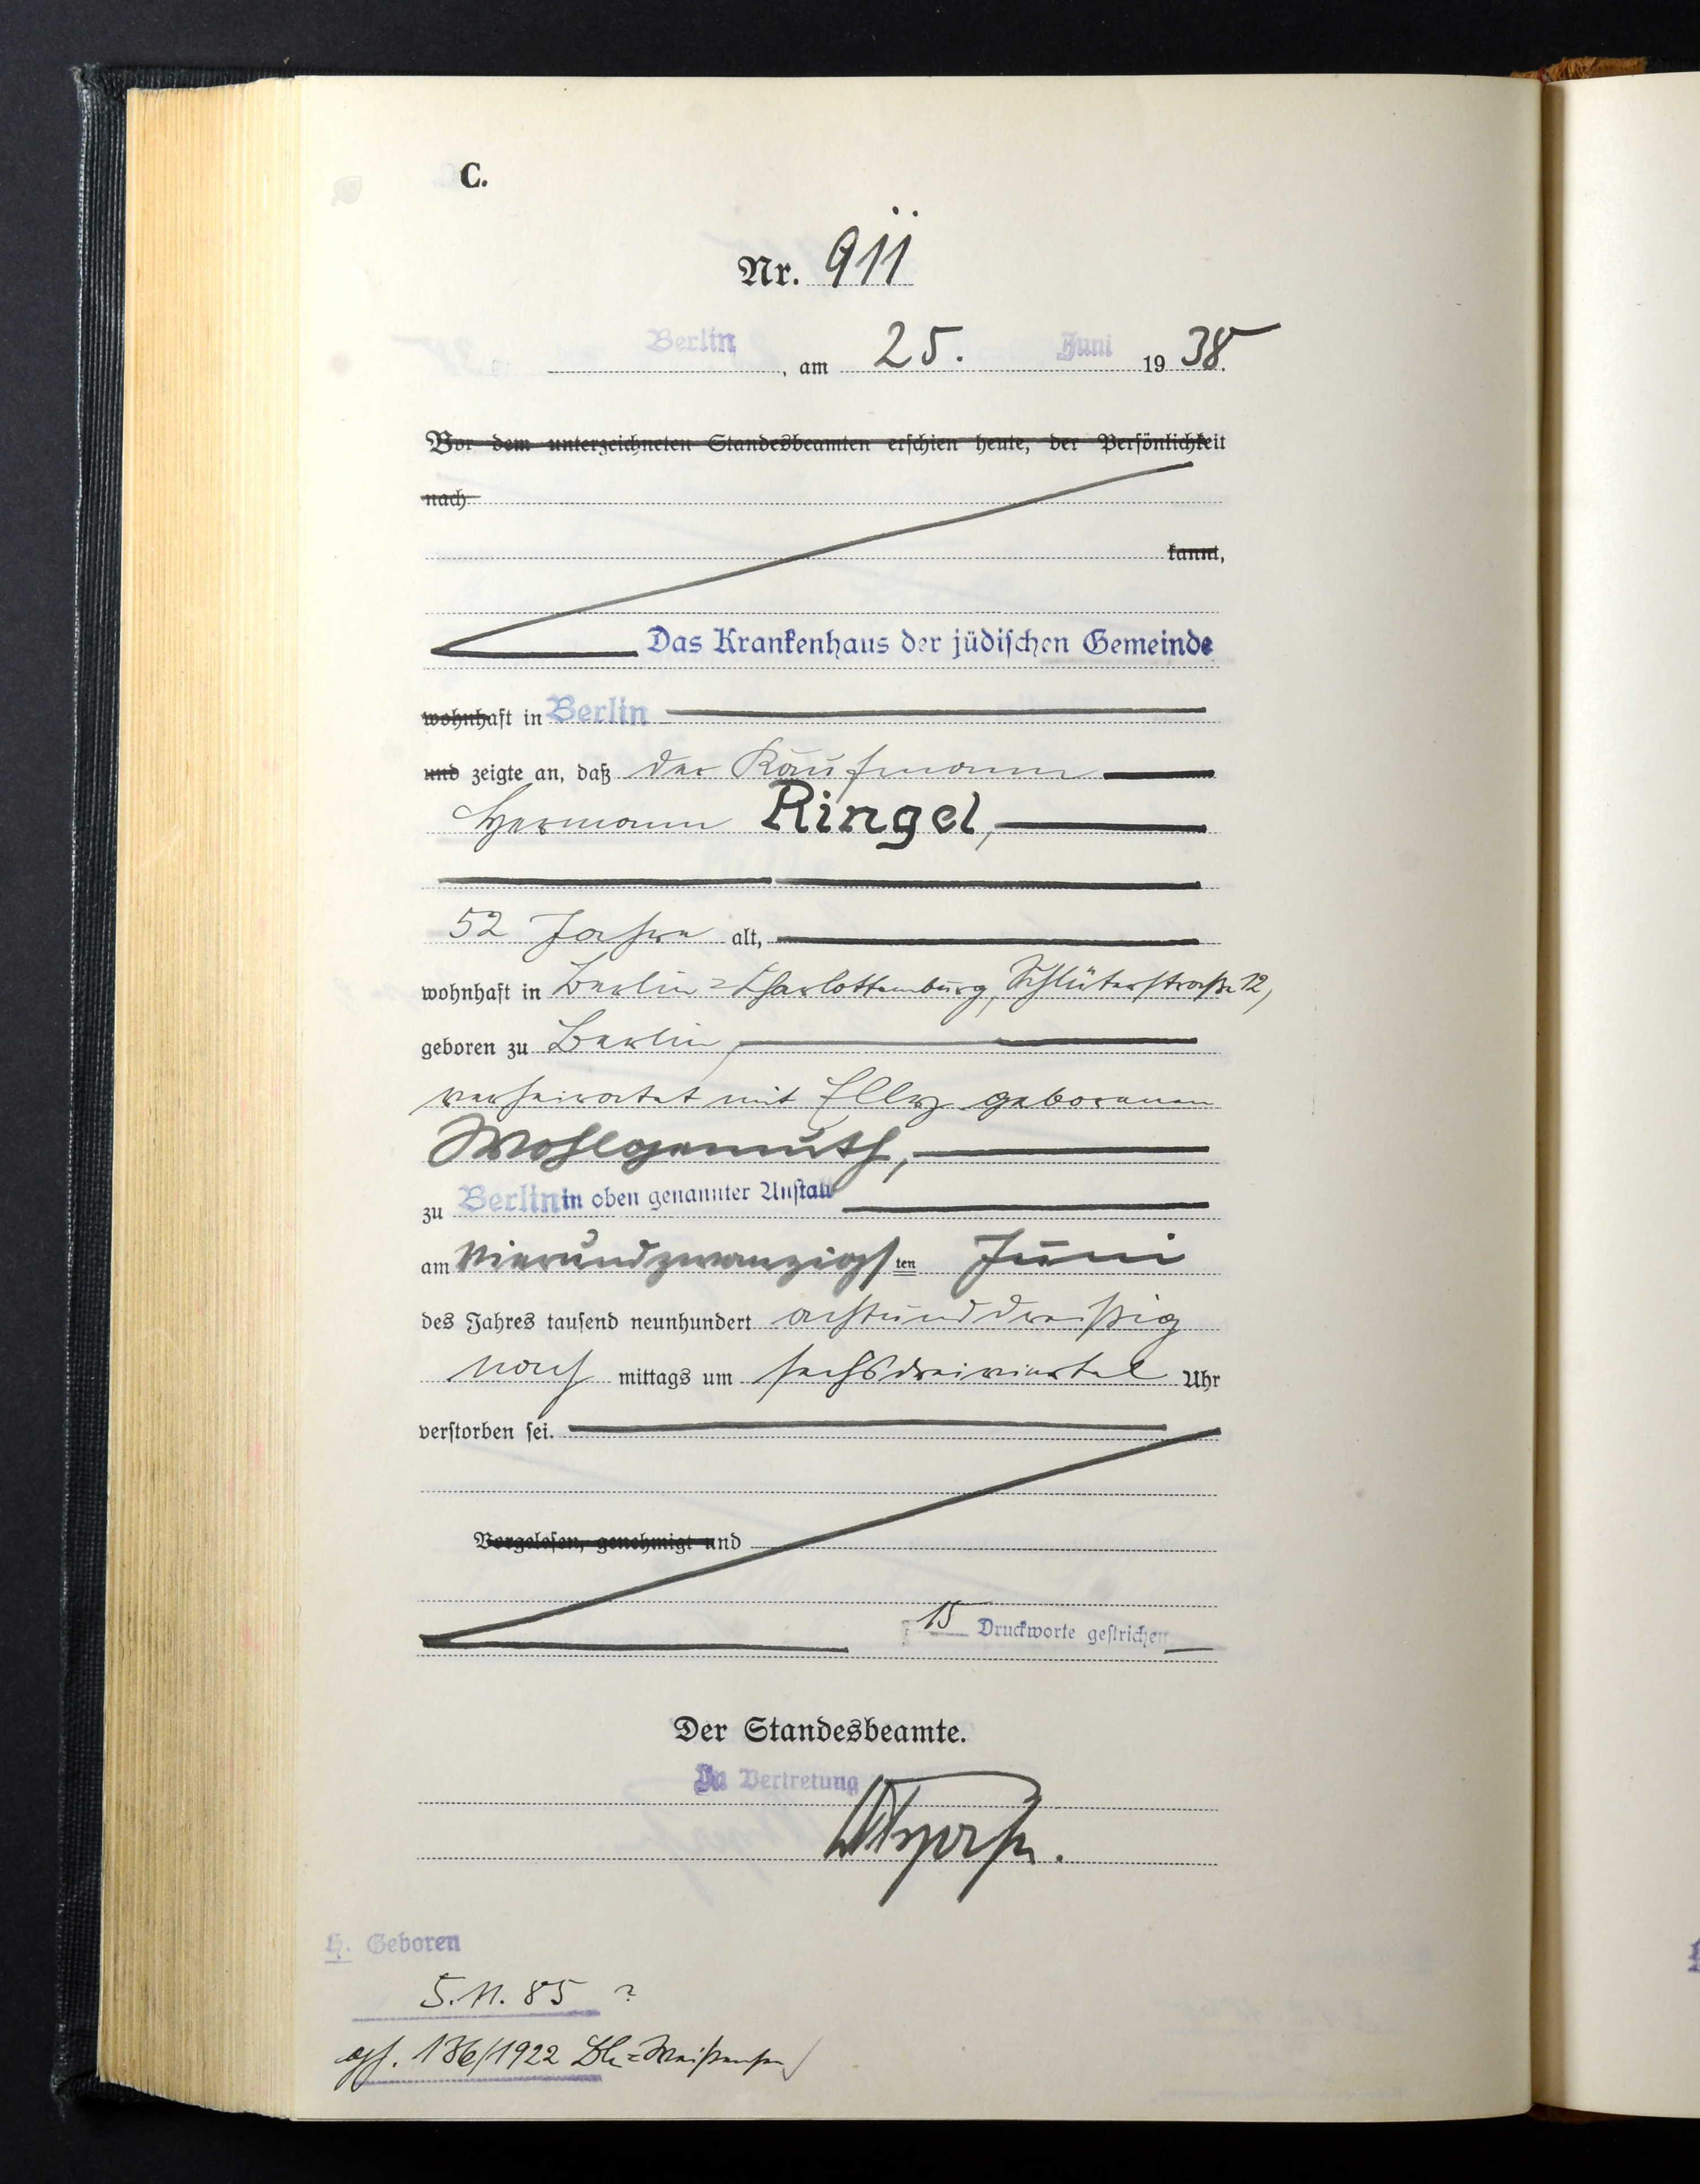 C.
Nr. 911
Berlin, am 25. Juni 1938.
Vor dem unterzeichneten Standesbeamten erschien heute, der Persönlichkeit
nach
kannt,
Das Krankenhaus der jüdischen Gemeinde
wohnhaft in Berlin
und zeigte an, daß der Kaufmann
Hermann Ringel,
52 Jahre alt,
wohnhaft in Berlin=Charlottenburg, Schlüterstraße 12,
geboren zu Berlin,
verheiratet mit Elly geborenen
Wohlgemuth,
zu Berlin in oben genannter Anstalt
am vierundzwanzigsten Juni
des Jahres tausend neunhundert achtunddreißig
nach mittags um sechsdreiviertel Uhr
verstorben sei.
Vorgelesen, genehmigt und
15 Druckworte gestrichen
Der Standesbeamte.
In Vertretung
H. Geboren
5.11.85 ?
136/1922 Bln=Weißensee